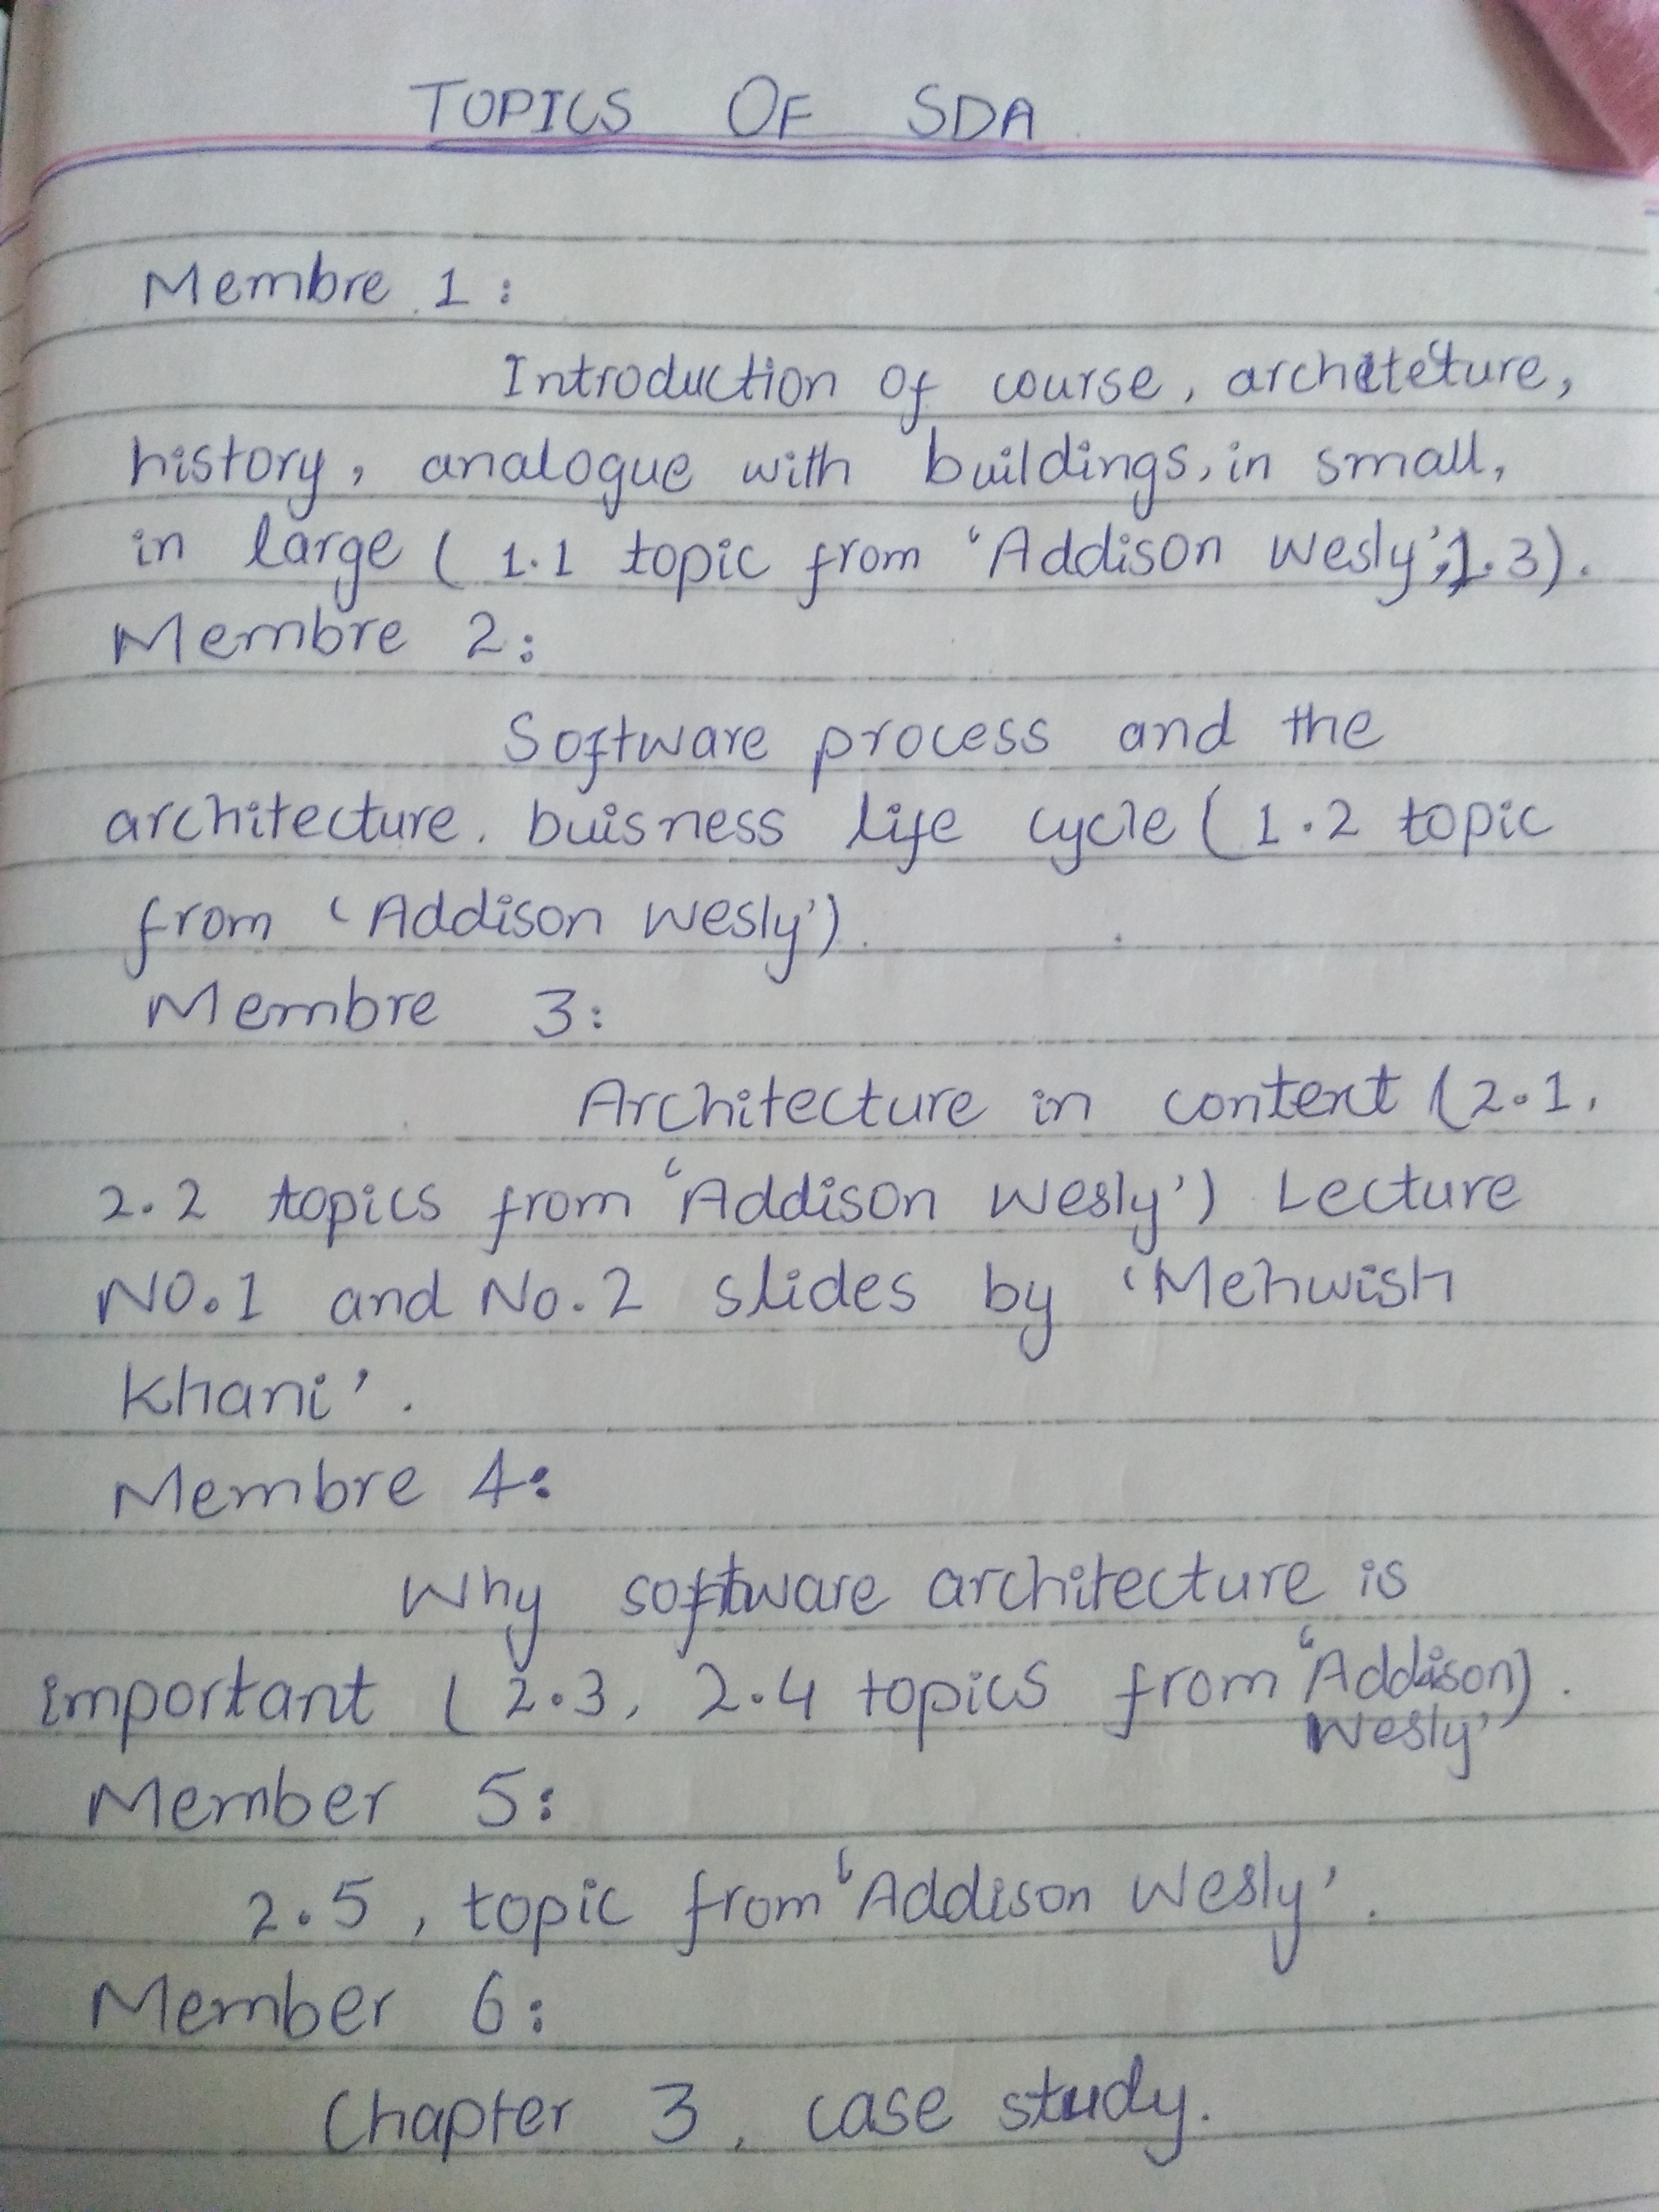 TOPICS OF SDA
Membre 1:
Introduction of course, architeture,
history, analogue with buildings, in small,
in large ( 1.1 topic from 'Addison Wesly', 1.3).
Membre 2:
Software process and the
architecture. buisness life cycle ( 1.2 topic
from 'Addison Wesly').
Membre 3:
Architecture in context (2.1,
2.2 topics from 'Addison Wesly') Lecture
NO.1 and No.2 slides by 'Mehwish
Khani'.
Membre 4:
Why software architecture is
important ( 2.3, 2.4 topics from 'Addison).
Wesly'
Member 5:
2.5, topic from 'Addison Wesly'.
Member 6:
Chapter 3, case study.